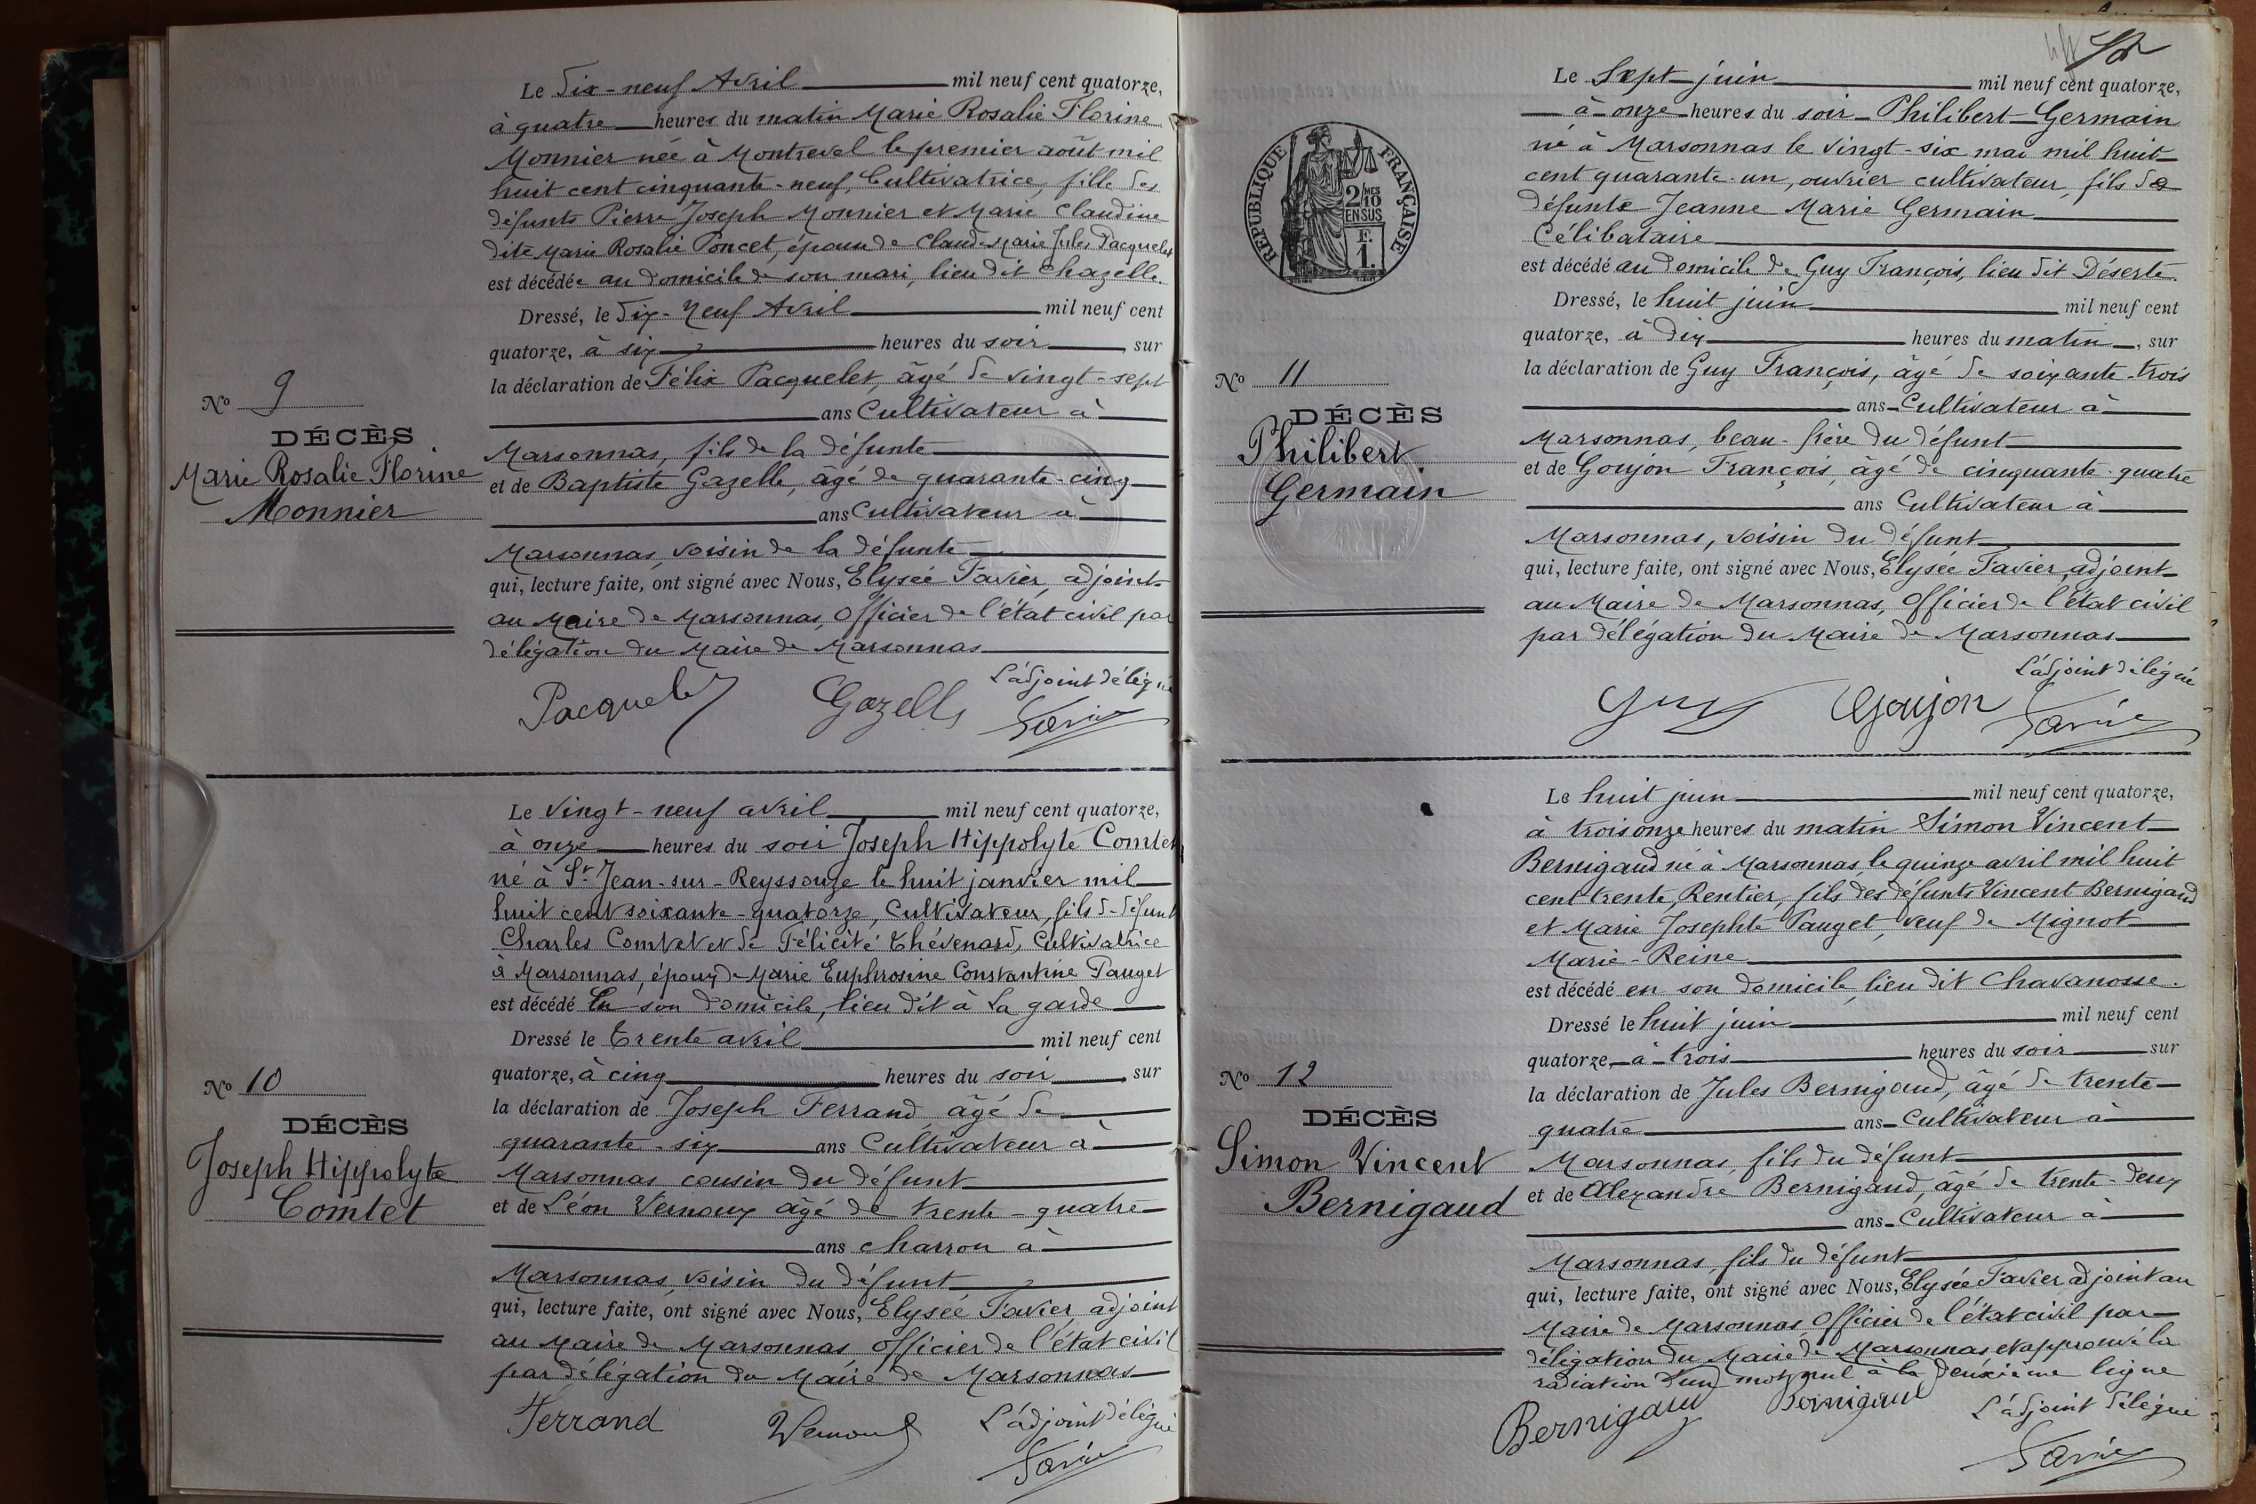 Le Dix-neuf Avril mil neuf cent quatorze,
à quatre heures du matin Marie Rosalie Florine
Monnier née à Montrevel le premier août mil
huit cent cinquante-neuf, Cultivatrice, fille des
défunts Pierre Joseph Monnier et Marie Claudine
dite Marie Rosalie Poncet, épouse de Claude Marie Jules Pacquelet
est décédée au domicile de son mari, lieu dit Chazelle.
Dressé, le Dix-Neuf Avril mil neuf cent
quatorze, à six heures du soir, sur
la déclaration de Félix Pacquelet, âgé de vingt-sept
ans Cultivateur à
Marsonnas, fils de la défunte
et de Baptiste Gazelle, âgé de quarante-cinq
ans Cultivateur à
Marsonnas, voisin de la défunte
qui, lecture faite, ont signé avec Nous, Elysée Favier, adjoint
au Maire de Marsonnas, Officier de l'état civil par
délégation du Maire de Marsonnas
L'adjoint délégué
Pacquelet Gazelle Favier
No 9
DÉCÈS
Marie Rosalie Florine
Monnier
Le vingt-neuf avril mil neuf cent quatorze,
à onze heures du soir Joseph Hippolyte Comtet
né à St Jean-sur-Reyssouze le huit janvier mil
huit cent soixante-quatorze, Cultivateur, fils de défunt
Charles Comtet et de Félicité Thévenard, Cultivatrice
à Marsonnas, époux de Marie Euphrosine Constantine Pauget
est décédé en son domicile, lieu dit à La garde
Dressé le trente avril mil neuf cent
quatorze, à cinq heures du soir, sur
la déclaration de Joseph Ferrand âgé de
quarante-six ans Cultivateur à
Marsonnas cousin du défunt
et de Léon Vernoux âgé de trente-quatre
ans charron à
Marsonnas, voisin du défunt
qui, lecture faite, ont signé avec Nous, Elysée Favier, adjoint
au Maire de Marsonnas Officier de l'état civil
par délégation du Maire de Marsonnas
Ferrand Vernoux L'adjoint délégué
Favier
No 10
DÉCÈS
Joseph Hippolyte
Comtet
RÉPUBLIQUE FRANÇAISE
2/10 MES
EN SUS
F.
1.
Le Sept juin mil neuf cent quatorze,
à onze heures du soir Philibert Germain
né à Marsonnas le vingt-six mai mil huit
cent quarante-un, ouvrier cultivateur, fils de
défunte Jeanne Marie Germain
Célibataire
est décédé au domicile de Guy François, lieu dit Déserte.
Dressé, le huit juin mil neuf cent
quatorze, à dix heures du matin, sur
la déclaration de Guy François, âgé de soixante-trois
ans Cultivateur à
Marsonnas, beau-frère du défunt
et de Goujon François, âgé de cinquante-quatre
ans Cultivateur à
Marsonnas, voisin du défunt
qui, lecture faite, ont signé avec Nous, Elysée Favier, adjoint
au Maire de Marsonnas, Officier de l'état civil
par délégation du Maire de Marsonnas
L'adjoint délégué
Guy Goujon Favier
No 11
DÉCÈS
Philibert
Germain
Le huit juin mil neuf cent quatorze,
à trois onze heures du matin Simon Vincent
Bernigaud né à Marsonnas, le quinze avril mil huit
cent trente, Rentier, fils des défunts Vincent Bernigaud
et Marie Josephte Pauget, veuf de Mignot
Marie-Reine
est décédé en son domicile, lieu dit Chavanosse.
Dressé le huit juin mil neuf cent
quatorze, à trois heures du soir sur
la déclaration de Jules Bernigaud, âgé de trente-
quatre ans Cultivateur à
Marsonnas, fils du défunt
et de Alexandre Bernigaud, âgé de trente-deux
ans Cultivateur à
Marsonnas, fils du défunt
qui, lecture faite, ont signé avec Nous, Elysée Favier adjoint au
Maire de Marsonnas Officier de l'état civil par
délégation du Maire de Marsonnas et approuvé la
radiation d'un mot nul à la deuxième ligne
Bernigaud Bernigaud L'adjoint délégué
Favier
No 12
DÉCÈS
Simon Vincent
Bernigaud